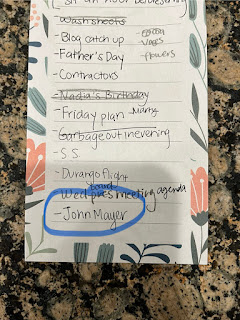 - Wash sheets
- Blog catch up - Vases
- Father's Day - Flowers
- Contractors
- Nadia's Birthday
- Friday plan
- Garbage out in evening
- S.S.
- Durango flight
- Wed meeting agenda
- John Mayer